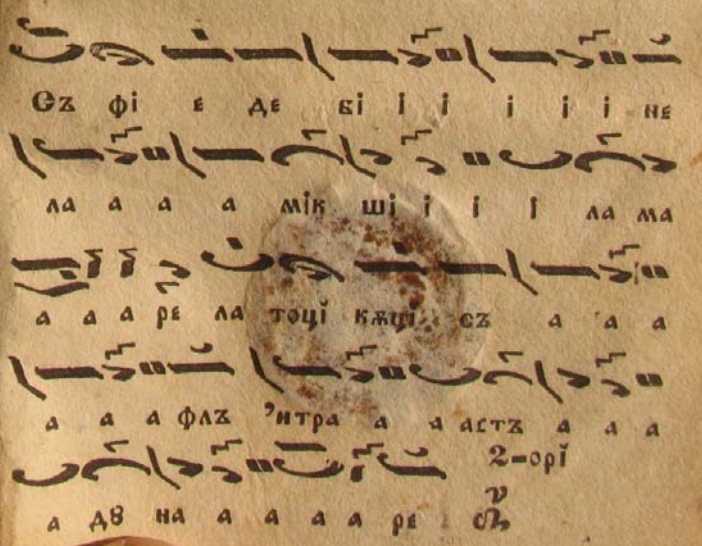 Съ фі е де бі і і і і і не
ла а а а мік ші і і і ла ма
а а а ре ла тоці кѫці съ а а а
а а а флъ ꙟтра а а астъ а а а
а дꙋ на а а а а ре
2=орі